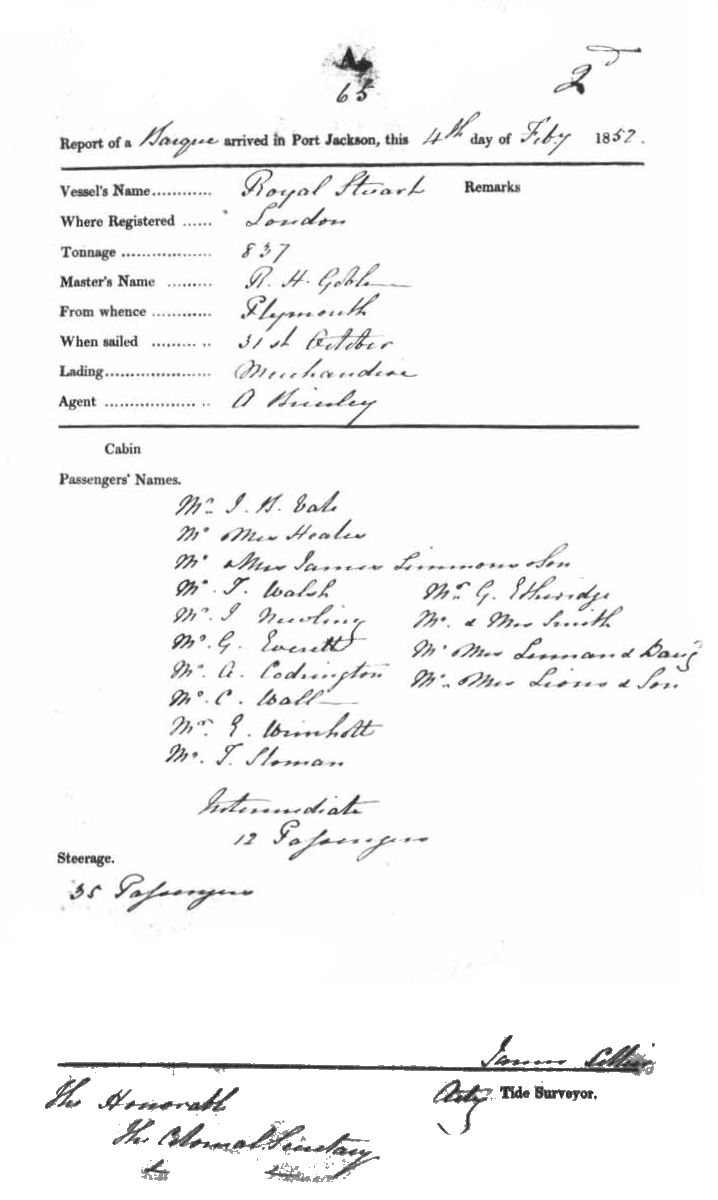 A.
65
2
Report of a Barque arrived in Port Jackson, this 4th day of Feby 1852.
Vessel's Name............ Royal Stuart Remarks
Where Registered ...... London
Tonnage .................. 837
Master's Name ......... R. H. Goble
From whence ............ Plymouth
When sailed ......... .. 31st October
Lading..................... Merchandise
Agent .................. .. A Brierley
Cabin
Passengers' Names.
Mr. I. B. Vale
Mr Mrs Heales
Mr & Mrs James Simmons & Son
Mr. T. Walsh Mr. G. Etheridge
Mr. I Newling Mr. & Mrs Smith
Mr. G. Everett Mr Mrs & Daug
Mr. A. Codrington Mr. Mrs Lions & Son
Mr. C. Wall
Mr. E. Wimhott
Mr. T. Sloman
Intermediate
12 Passengers
Steerage.
35 Passengers
James
Actg Tide Surveyor.
The Honorable
The Colonial Secretary